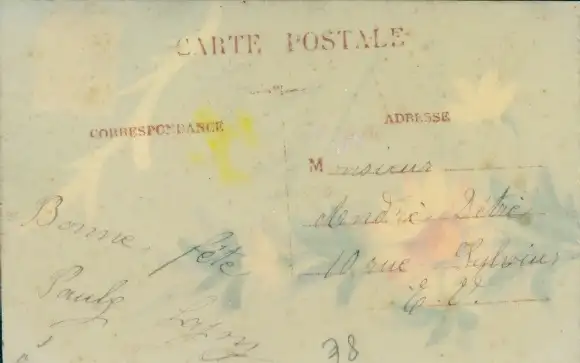 CARTE POSTALE
CORRESPONDANCE
ADRESSE
Monsieur
André Pétré
10 rue Sylvius
E. V.
Bonne fête
Paul
78